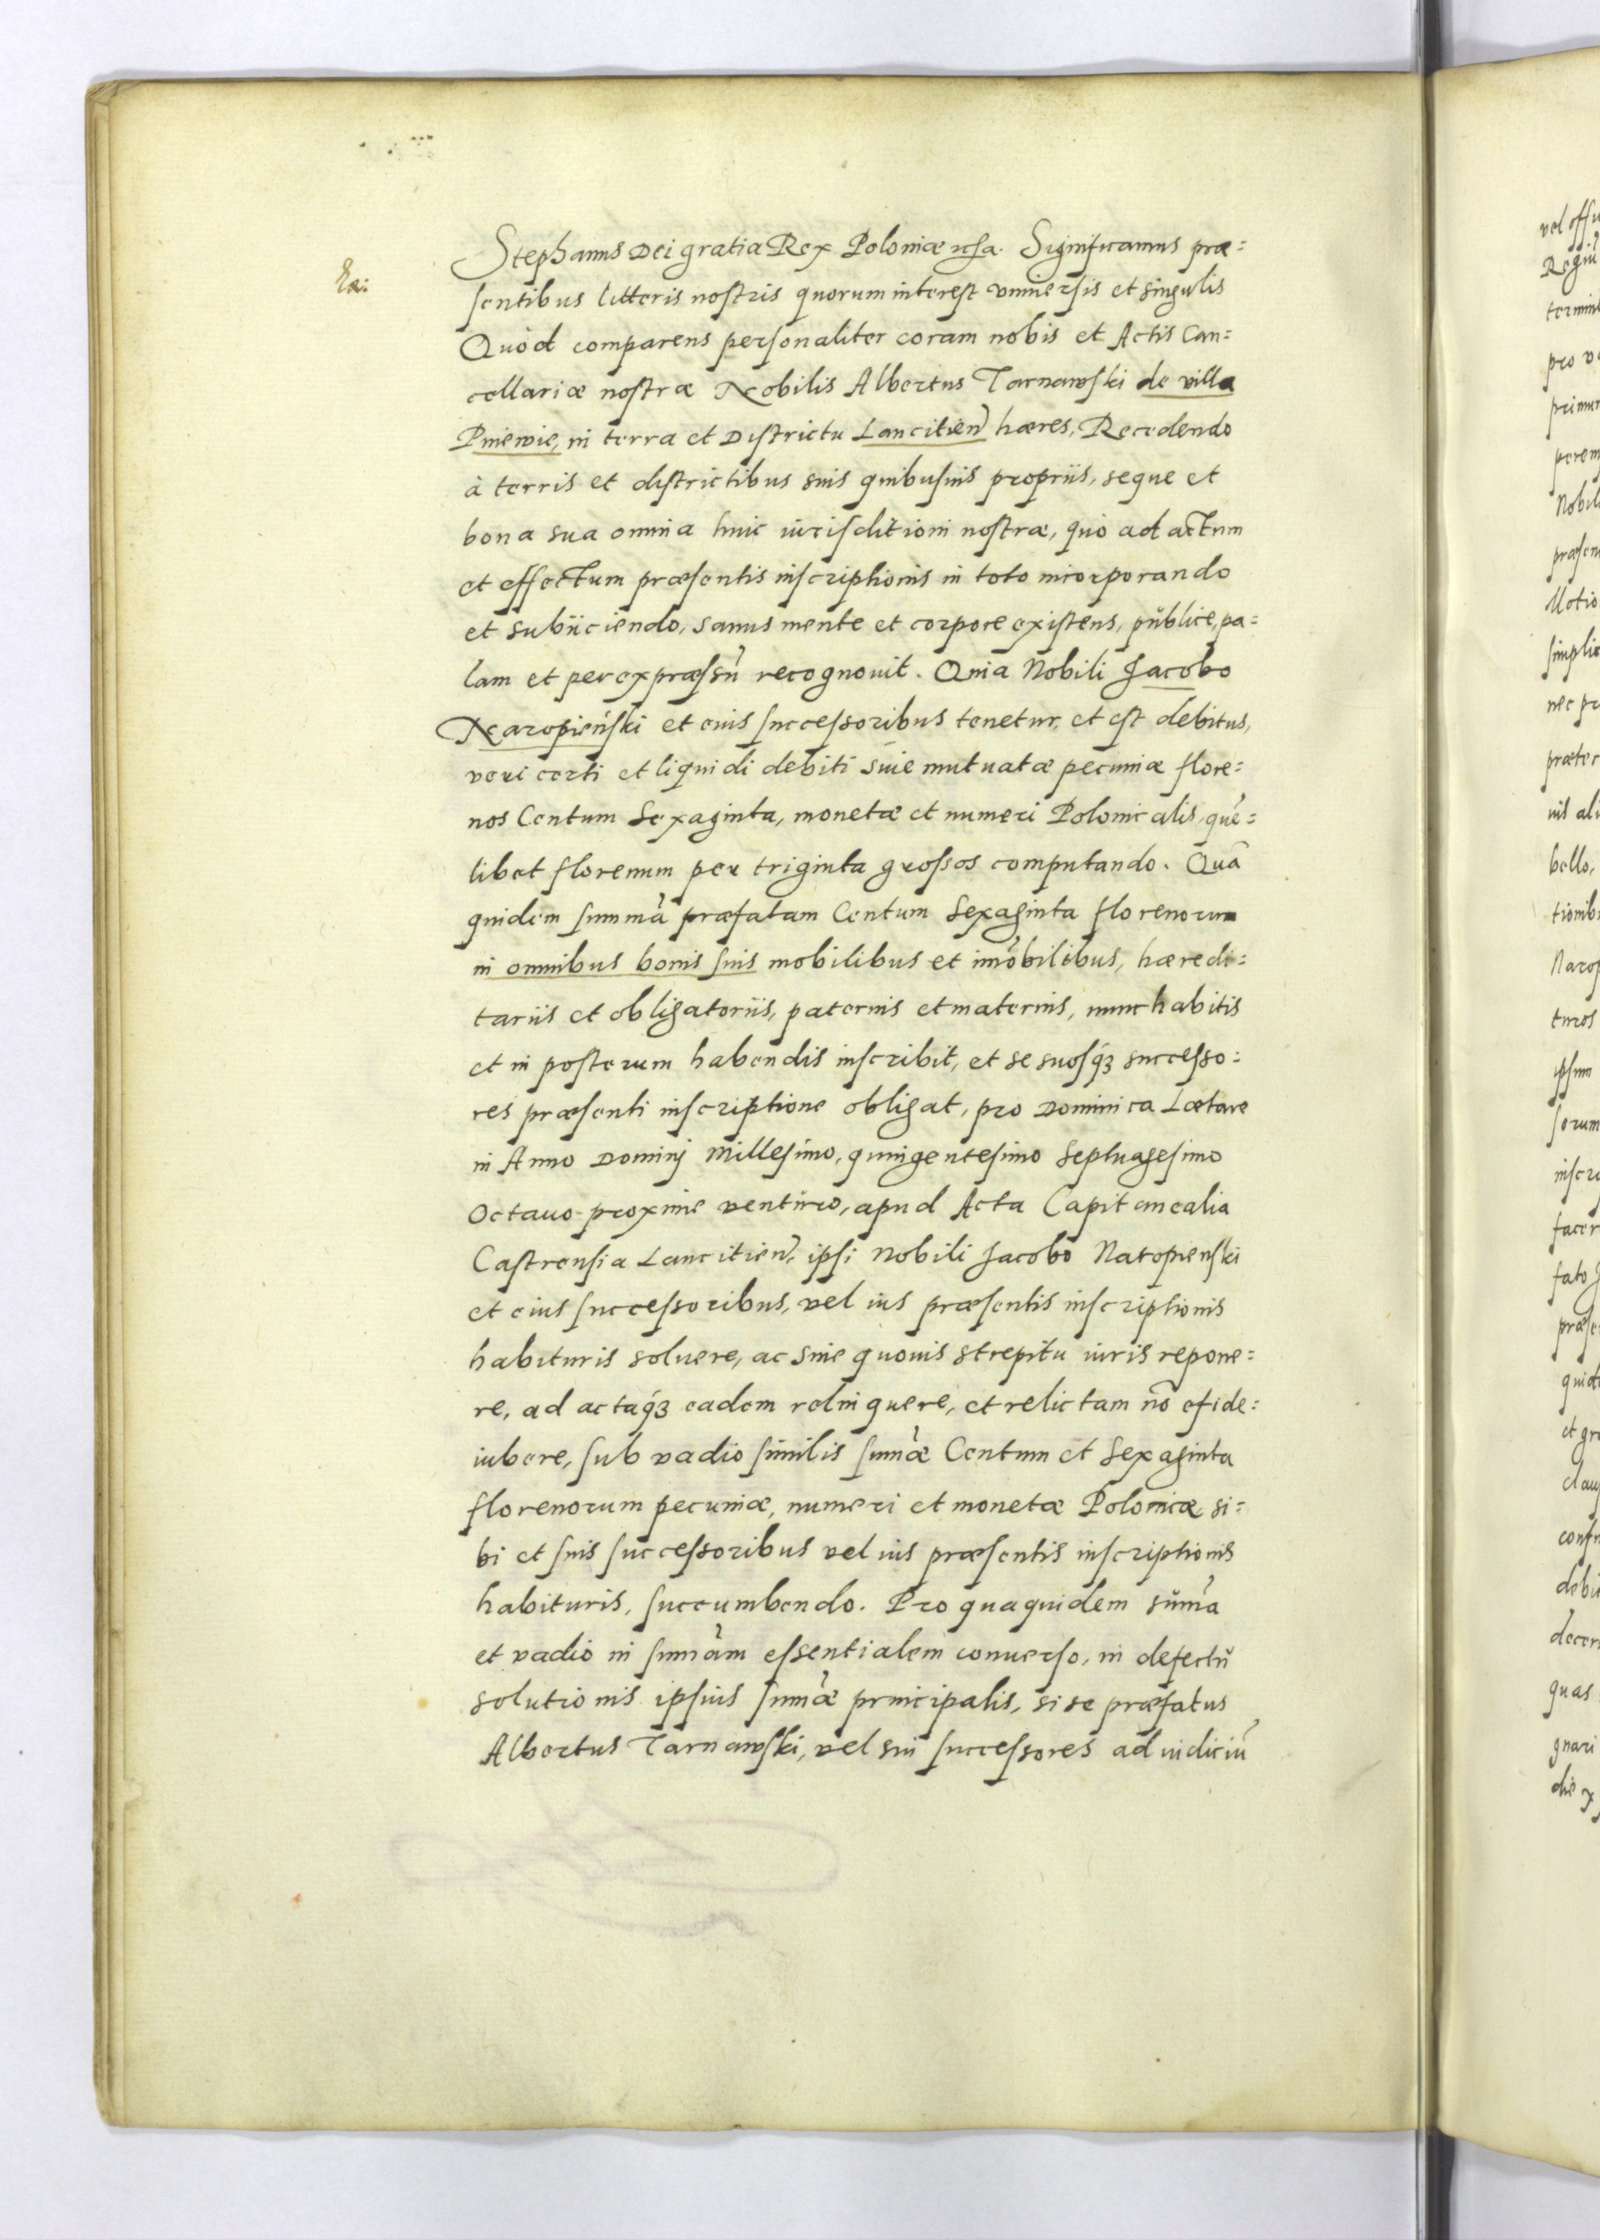 Ex:
Stephanus Dei gratia Rex Poloniæ etc̃a. Significamus præ=
sentibus litteris nostris quorum interest vniuersis et singulis
Quòd comparens personaliter coram nobis et Actis Can=
cellariæ nostræ Nobilis Albertus Tarnawski de villa
Pniewie, in terra et Districtu Lancitieñ hæres, Recedendo
à terris et districtibus suis quibusuis propriis, seque et
bona sua omnia huic iurisditioni nostræ, quò ad actum
et effectum præsentis inscriptionis in toto incorporando
et subiiciendo, sanus mente et corpore existens, publice, pa=
lam et per expræssũ recognouit. Quia Nobili Jacobo
Naropieński et eius successoribus tenetur, et est debitus,
veri certi et liquidi debiti siue mutuatæ pecuniæ flore=
nos Centum Sexaginta, monetæ et numeri Polonicalis, quẽ=
libet florenum per triginta grossos computando. Quã
quidem summã præfatam Centum Sexaginta florenorum
in omnibus bonis suis mobilibus et im̃obilibus, hæredi=
tariis et obligatoriis, paternis et maternis, nunc habitis
et in posterum habendis inscribit, et se suosq́ꝫ successo=
res præsenti inscriptione obligat, pro Dominica Lætare
in Anno Dominj Millesimo, quingentesimo Septuagesimo
Octauo proxime venturo, apud Acta Capitanealia
Castrensia Lancitieñ, ipsi Nobili Jacobo Naropienski
et eius successoribus, vel ius præsentis inscriptionis
habituris soluere, ac sine quouis strepitu iuris repone=
re, ad actaq́ꝫ eadem relinquere, et relictam nõ efide=
iubere, sub vadio similis sum̃æ Centum et Sexaginta
florenorum pecuniæ, numeri et monetæ Polonicæ si=
bi et suis successoribus vel ius præsentis inscriptionis
habituris, succumbendo. Pro quaquidem sum̃a
et vadio in sum̃am essentialem conuerso, in defectũ
solutionis ipsius sum̃æ principalis, si se præfatus
Albertus Tarnawski, vel sui successores ad iudiciũ